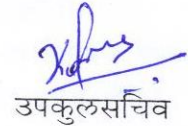 उपकुलसचिव